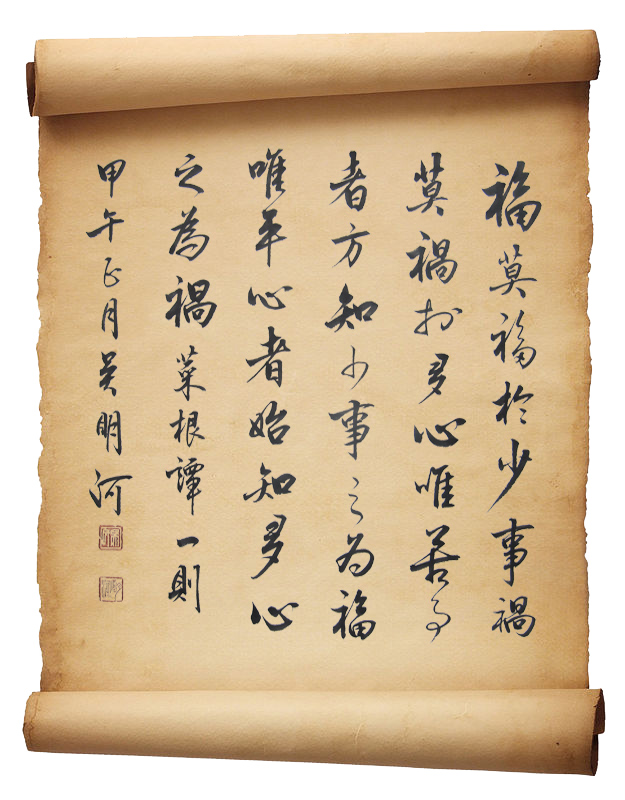 福莫福於少事禍
莫禍於多心唯苦事
者方知少事之為福
唯平心者始知多心
之為禍菜根譚一則
甲午正月吳明河